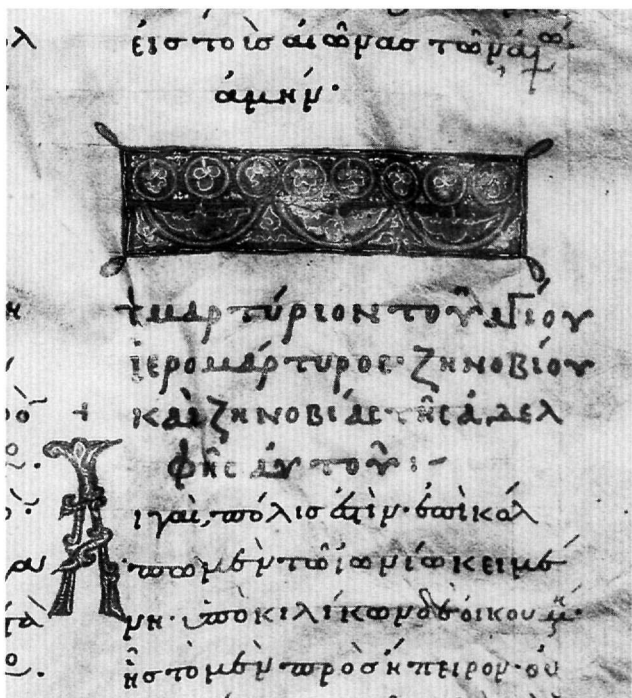 εἰς τοὺς αἰῶνας τῶν αἰώ.
ἀμήν·
+ μαρτύριον τοῦ ἁγίου
ἱερομάρτυρος· ζηνοβίου
καὶ ζηνοβίας τῆς ἀδελ
φῆς αὐτοῦ :-
Αἰγαὶ, πόλις ἐστὶν· ἐπὶ κόλ
πω μὲν τῶ ἰωνίω κειμέ
νη· ὑπὸ κιλίκων δὲ οἰκουμ
ῆς τὸ μὲν πρὸς ἤπειρον· οὐ